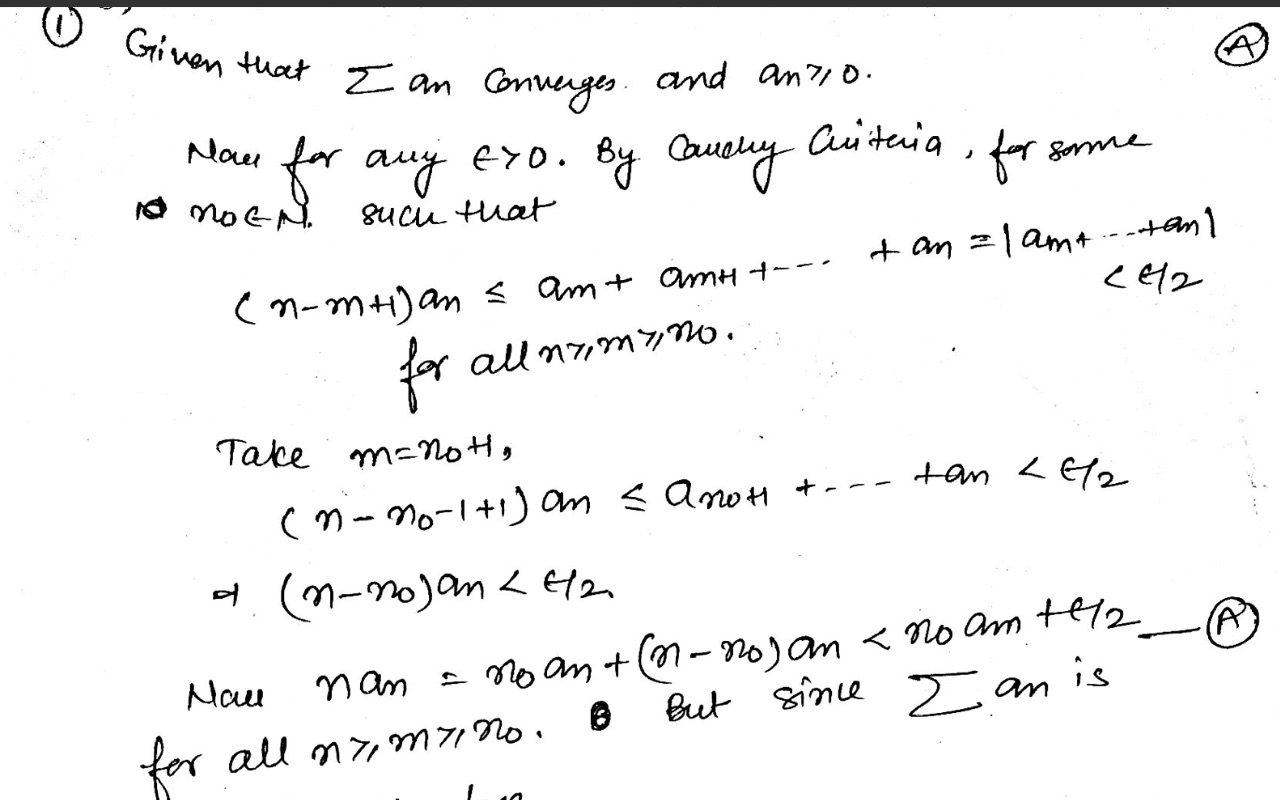 ① Ⓐ
Given that Σ an Converges. and an ≥ 0.
Now for any ϵ>0. By Cauchy Criteria, for some
no∈N. such that
(n-m+1)an ≤ am+ am+1 +---. + an = |am+ ---+an|
< ϵ/2
for all n≥m≥no.
Take m=no+1,
(n-no-1+1) an ≤ ano+1 +---- +an < ϵ/2
⇒ (n-no)an < ϵ/2.
Now nan = no an+(n-no)an < no am +ϵ/2 — Ⓐ
for all n≥m≥no. But since Σ an is